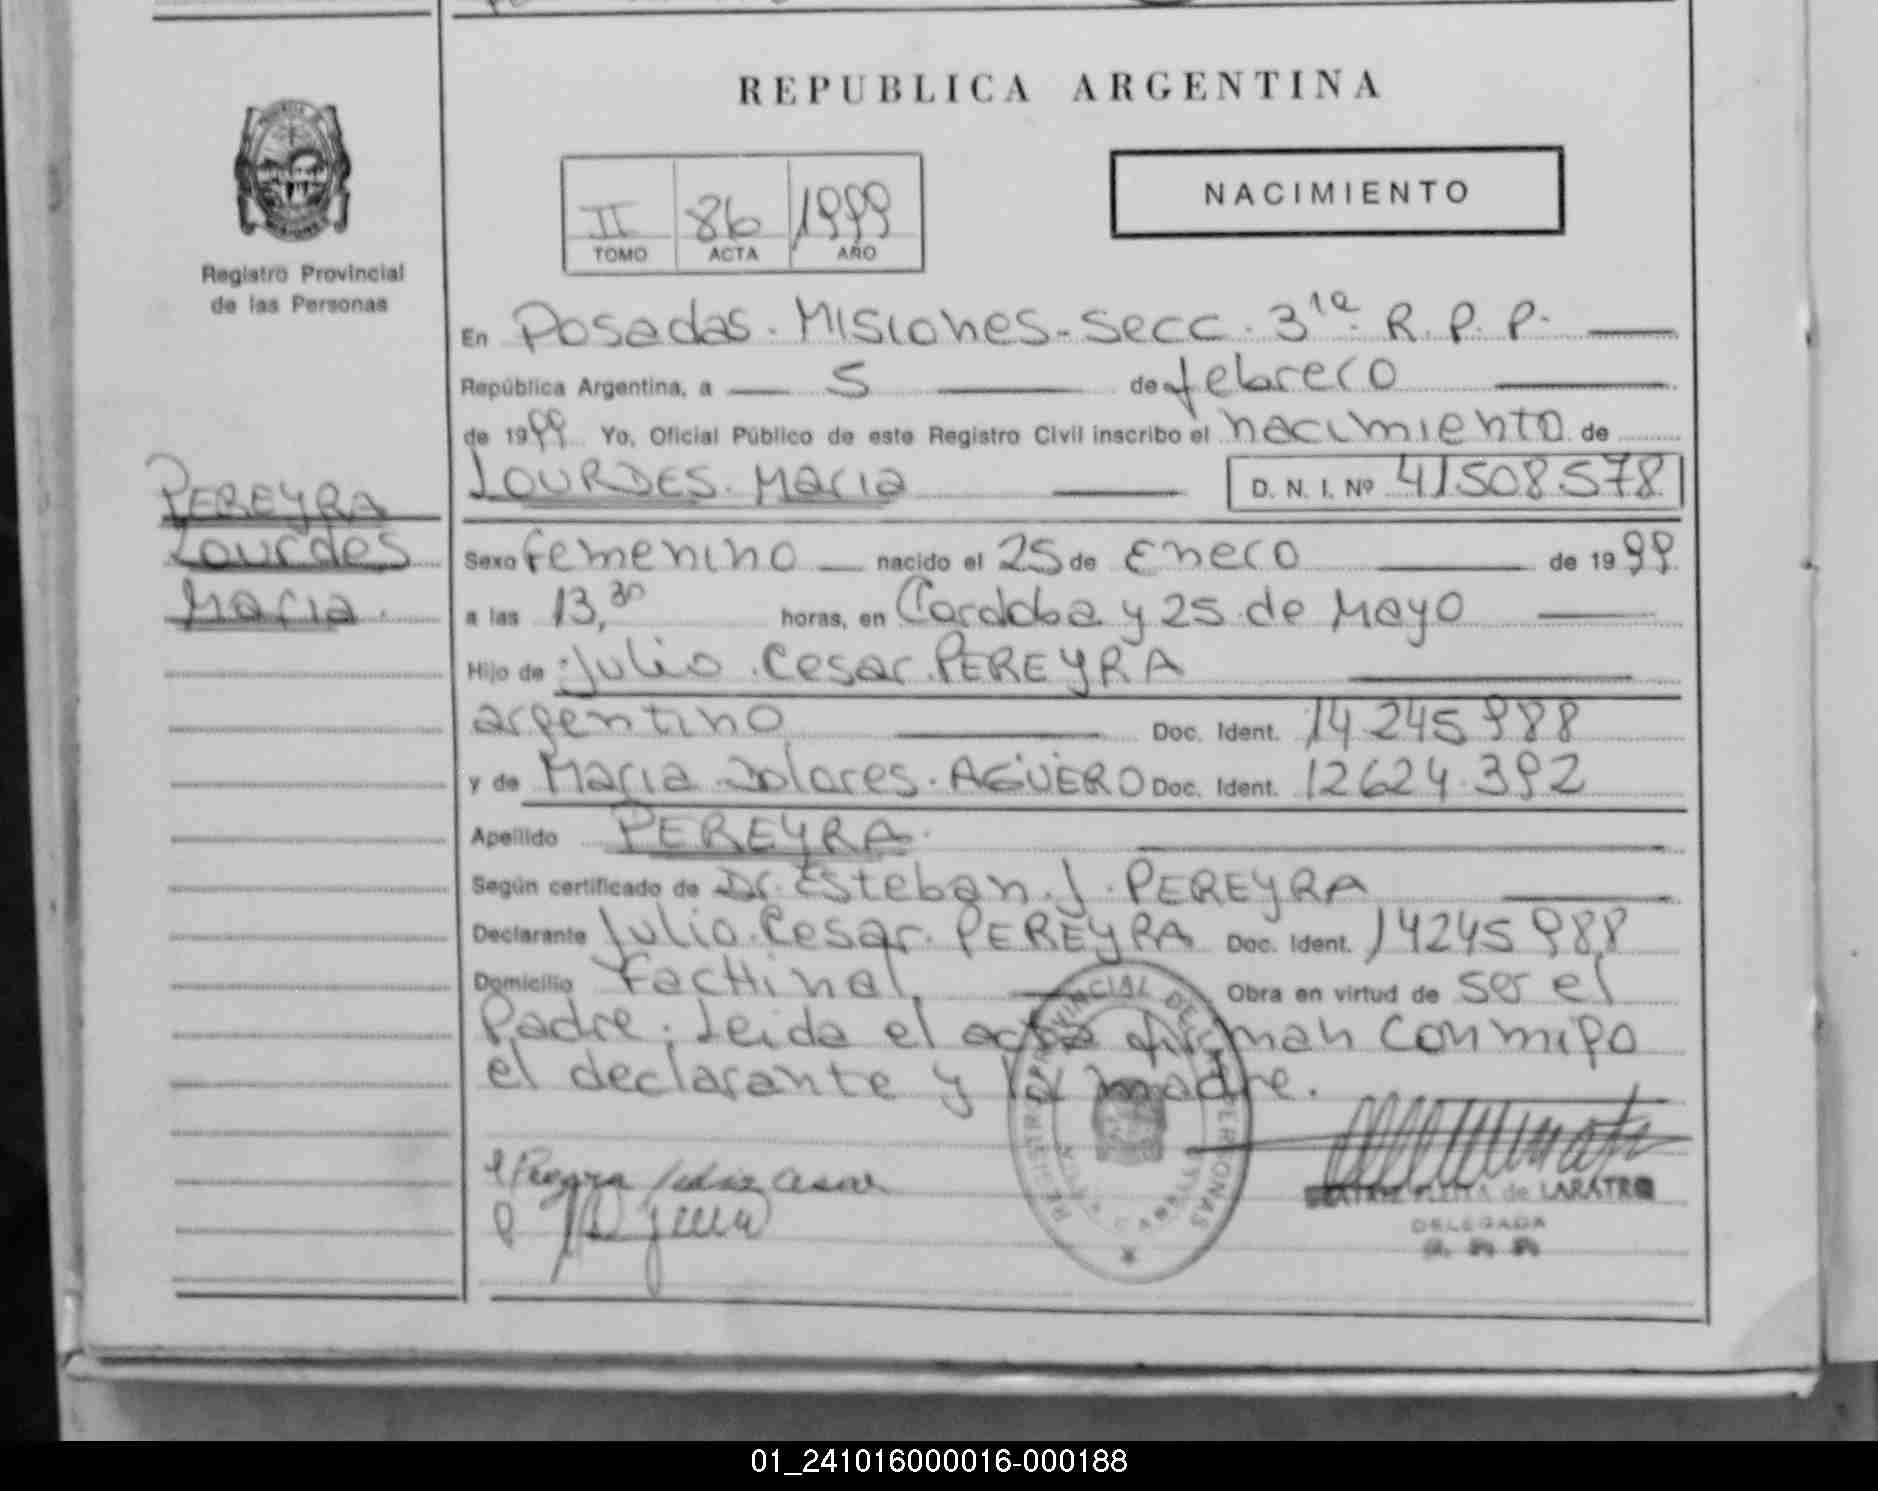 REPUBLICA ARGENTINA
NACIMIENTO
II 86 1999
TOMO ACTA AÑO
Registro Provincial
de las Personas
En Posadas. Misiones-Secc. 3ra. R.P.P.
República Argentina, a 5 de febrero
de 1999 Yo, Oficial Público de este Registro Civil inscribo el nacimiento de
LOURDES. Maria D. N. I. Nº 41508578
PEREYRA
Lourdes
Maria.
Sexo femenino nacido el 25 de Enero de 1999
a las 13,30 horas, en Cordoba y 25 de Mayo
Hijo de Julio Cesar PEREYRA
argentino Doc. Ident. 14 245 988
y de Maria Dolores. AGÜERO Doc. Ident. 12624.392
Apellido PEREYRA.
Según certificado de Dr. Esteban. J. PEREYRA
Declarante Julio. Cesar. PEREYRA Doc. Ident. 14245988
Domicilio Fachinal, Obra en virtud de ser el
Padre. Leida el acta firman conmigo
el declarante y la madre.
Pereyra Julio Cesar
de LARATRO
DELEGADA
REGISTRO PROVINCIAL DE LAS PERSONAS
01_241016000016-000188